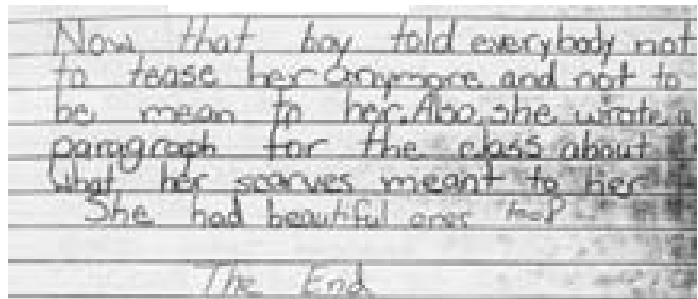 Now that boy told everybody not
to tease her anymore and not to
be mean to her. Also, she wrote a
paragraph for the class about
what her scarves meant to her
She had beautiful ones too!
The End